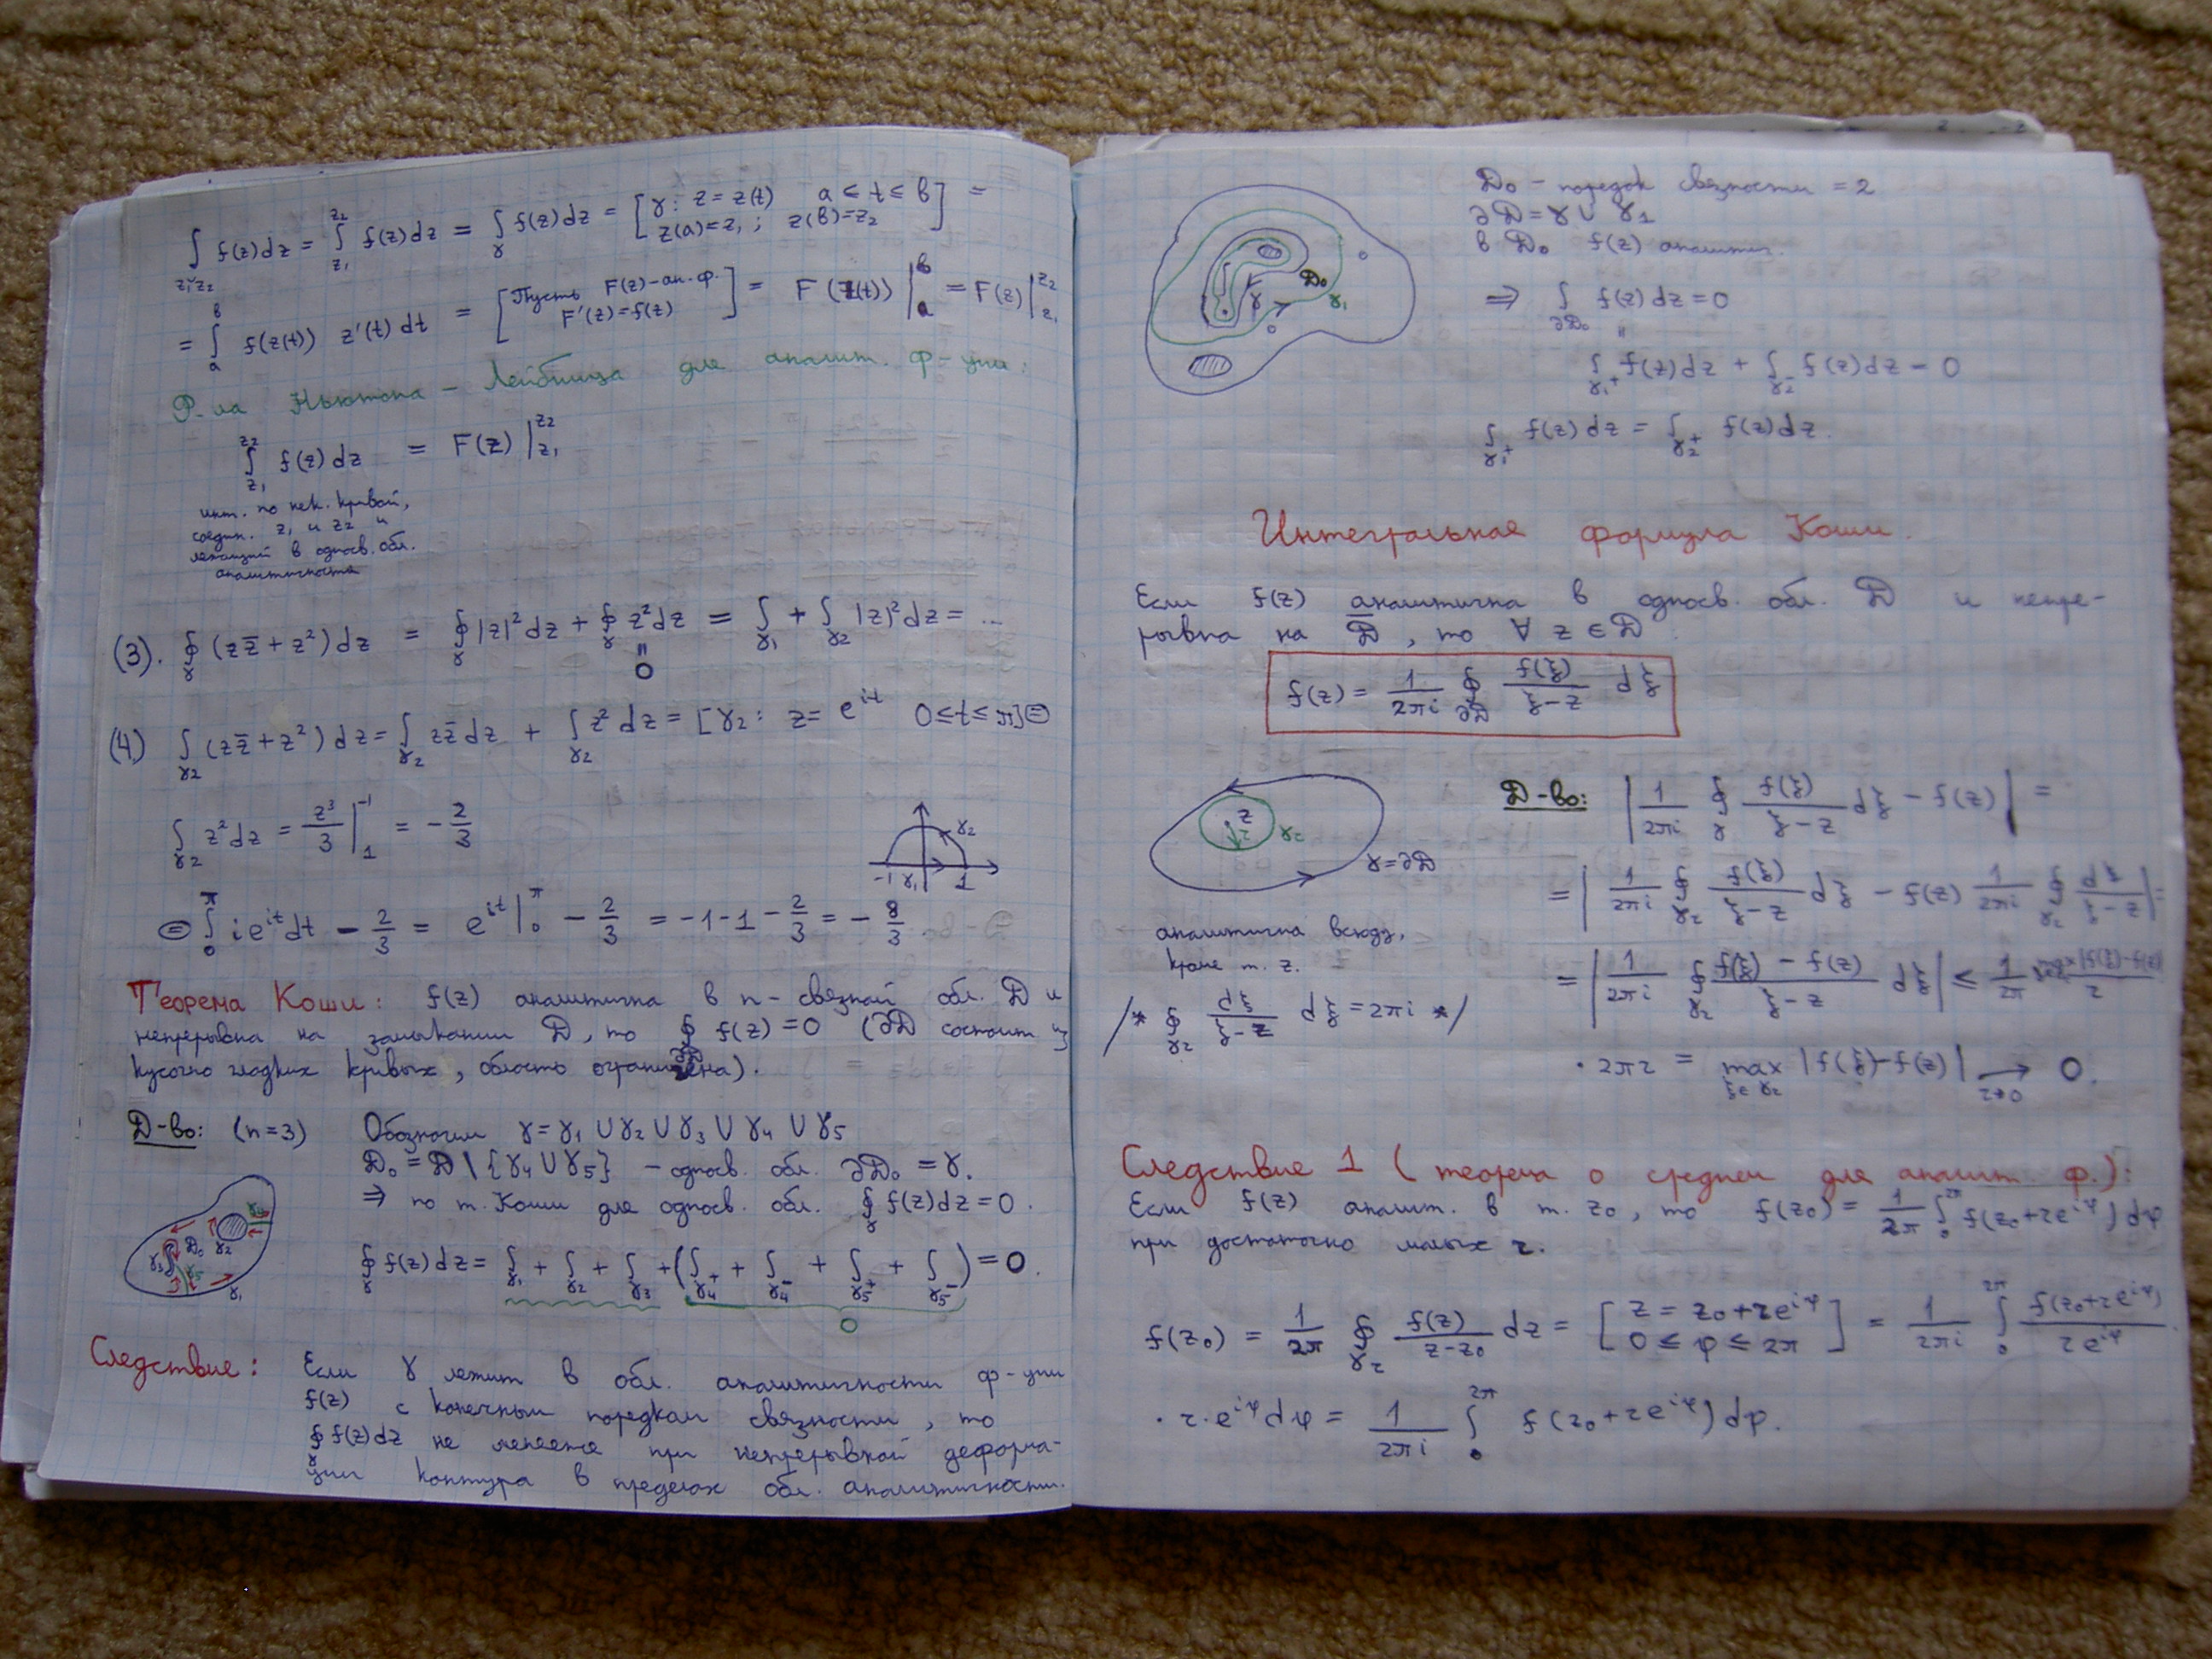 ∫_{z₁z₂} f(z)dz = ∫_{z₁}^{z₂} f(z)dz = ∫_γ f(z)dz = [γ: z=z(t) a≤t≤b; z(a)=z₁; z(b)=z₂] =
= ∫_a^b f(z(t)) z'(t)dt = [Пусть F(z)-ан.ф. F'(z)=f(z)] = F(z(t))|_a^b = F(z)|_{z₁}^{z₂}
Ф-ла Ньютона – Лейбница для аналит. ф-ции:
∫_{z₁}^{z₂} f(z)dz = F(z)|_{z₁}^{z₂}
инт. по нек. кривой,
соедин. z₁ и z₂ и
лежащей в односв. обл.
аналитичности
(3). ∮_γ (zz̄+z²)dz = ∮_γ |z|²dz + ∮_γ z²dz = ∫_{γ₁} + ∫_{γ₂} |z|²dz = ...
0
(4) ∫_{γ₂} (zz̄+z²)dz = ∫_{γ₂} zz̄dz + ∫_{γ₂} z²dz = [γ₂: z=e^{it} 0≤t≤π] ⊜
∫_{γ₂} z²dz = z³/3 |_1^{-1} = -2/3
γ₂
-1 γ₁ 1
⊜ ∫_0^π ie^{it}dt - 2/3 = e^{it}|_0^π - 2/3 = -1-1-2/3 = -8/3.
Теорема Коши: f(z) аналитична в n-связной обл. D и
непрерывна на замыкании D, то ∮_{∂D} f(z)=0 (∂D состоит из
кусочно гладких кривых, область ограничена).
Д-во: (n=3) Обозначим γ=γ₁∪γ₂∪γ₃∪γ₄∪γ₅
D₀=D\{γ₄∪γ₅} – односв. обл. ∂D₀=γ.
⇒ по т. Коши для односв. обл. ∮_γ f(z)dz=0.
γ₄ γ₂ D₀ γ₃ γ₅ γ₁
∮_γ f(z)dz = ∫_{γ₁} + ∫_{γ₂} + ∫_{γ₃} + (∫_{γ₄⁺} + ∫_{γ₄⁻} + ∫_{γ₅⁺} + ∫_{γ₅⁻}) = 0.
0
Следствие: Если γ лежит в обл. аналитичности ф-ции
f(z) с конечным порядком связности, то
∮_γ f(z)dz не меняется при непрерывной деформа-
ции контура в пределах обл. аналитичности.
D₀ – порядок связности = 2
∂D=γ∪γ₁
в D₀ f(z) аналитич.
D₀ γ γ₁
⇒ ∫_{∂D₀} f(z)dz=0
∫_{γ₁⁺} f(z)dz + ∫_{γ₂⁻} f(z)dz = 0
∫_{γ₁⁺} f(z)dz = ∫_{γ₂⁺} f(z)dz.
Интегральная формула Коши.
Если f(z) аналитична в односв. обл. D и непре-
рывна на D̄, то ∀ z∈D
f(z) = 1/(2πi) ∮_{∂D} f(ξ)/(ξ-z) dξ
z r γ_r γ=∂D
Д-во: |1/(2πi) ∮_γ f(ξ)/(ξ-z) dξ - f(z)| =
= |1/(2πi) ∮_{γ_r} f(ξ)/(ξ-z) dξ - f(z) 1/(2πi) ∮_{γ_r} dξ/(ξ-z)| =
аналитична всюду,
кроме т. z.
= |1/(2πi) ∮_{γ_r} (f(ξ)-f(z))/(ξ-z) dξ| ≤ 1/(2π) max|f(ξ)-f(z)|/r
/* ∮_{γ_r} dξ/(ξ-z) dξ=2πi */
· 2πr = max_{ξ∈γ_r} |f(ξ)-f(z)| →_{r→0} 0.
Следствие 1 (теорема о среднем для аналит. ф.):
Если f(z) аналит. в т. z₀, то f(z₀) = 1/(2π) ∫_0^{2π} f(z₀+re^{iφ})dφ
при достаточно малых r.
f(z₀) = 1/(2π) ∮_{γ_r} f(z)/(z-z₀) dz = [z=z₀+re^{iφ} 0≤φ≤2π] = 1/(2πi) ∫_0^{2π} f(z₀+re^{iφ})/(re^{iφ}) ·
· r·e^{iφ}dφ = 1/(2πi) ∫_0^{2π} f(z₀+re^{iφ})dφ.